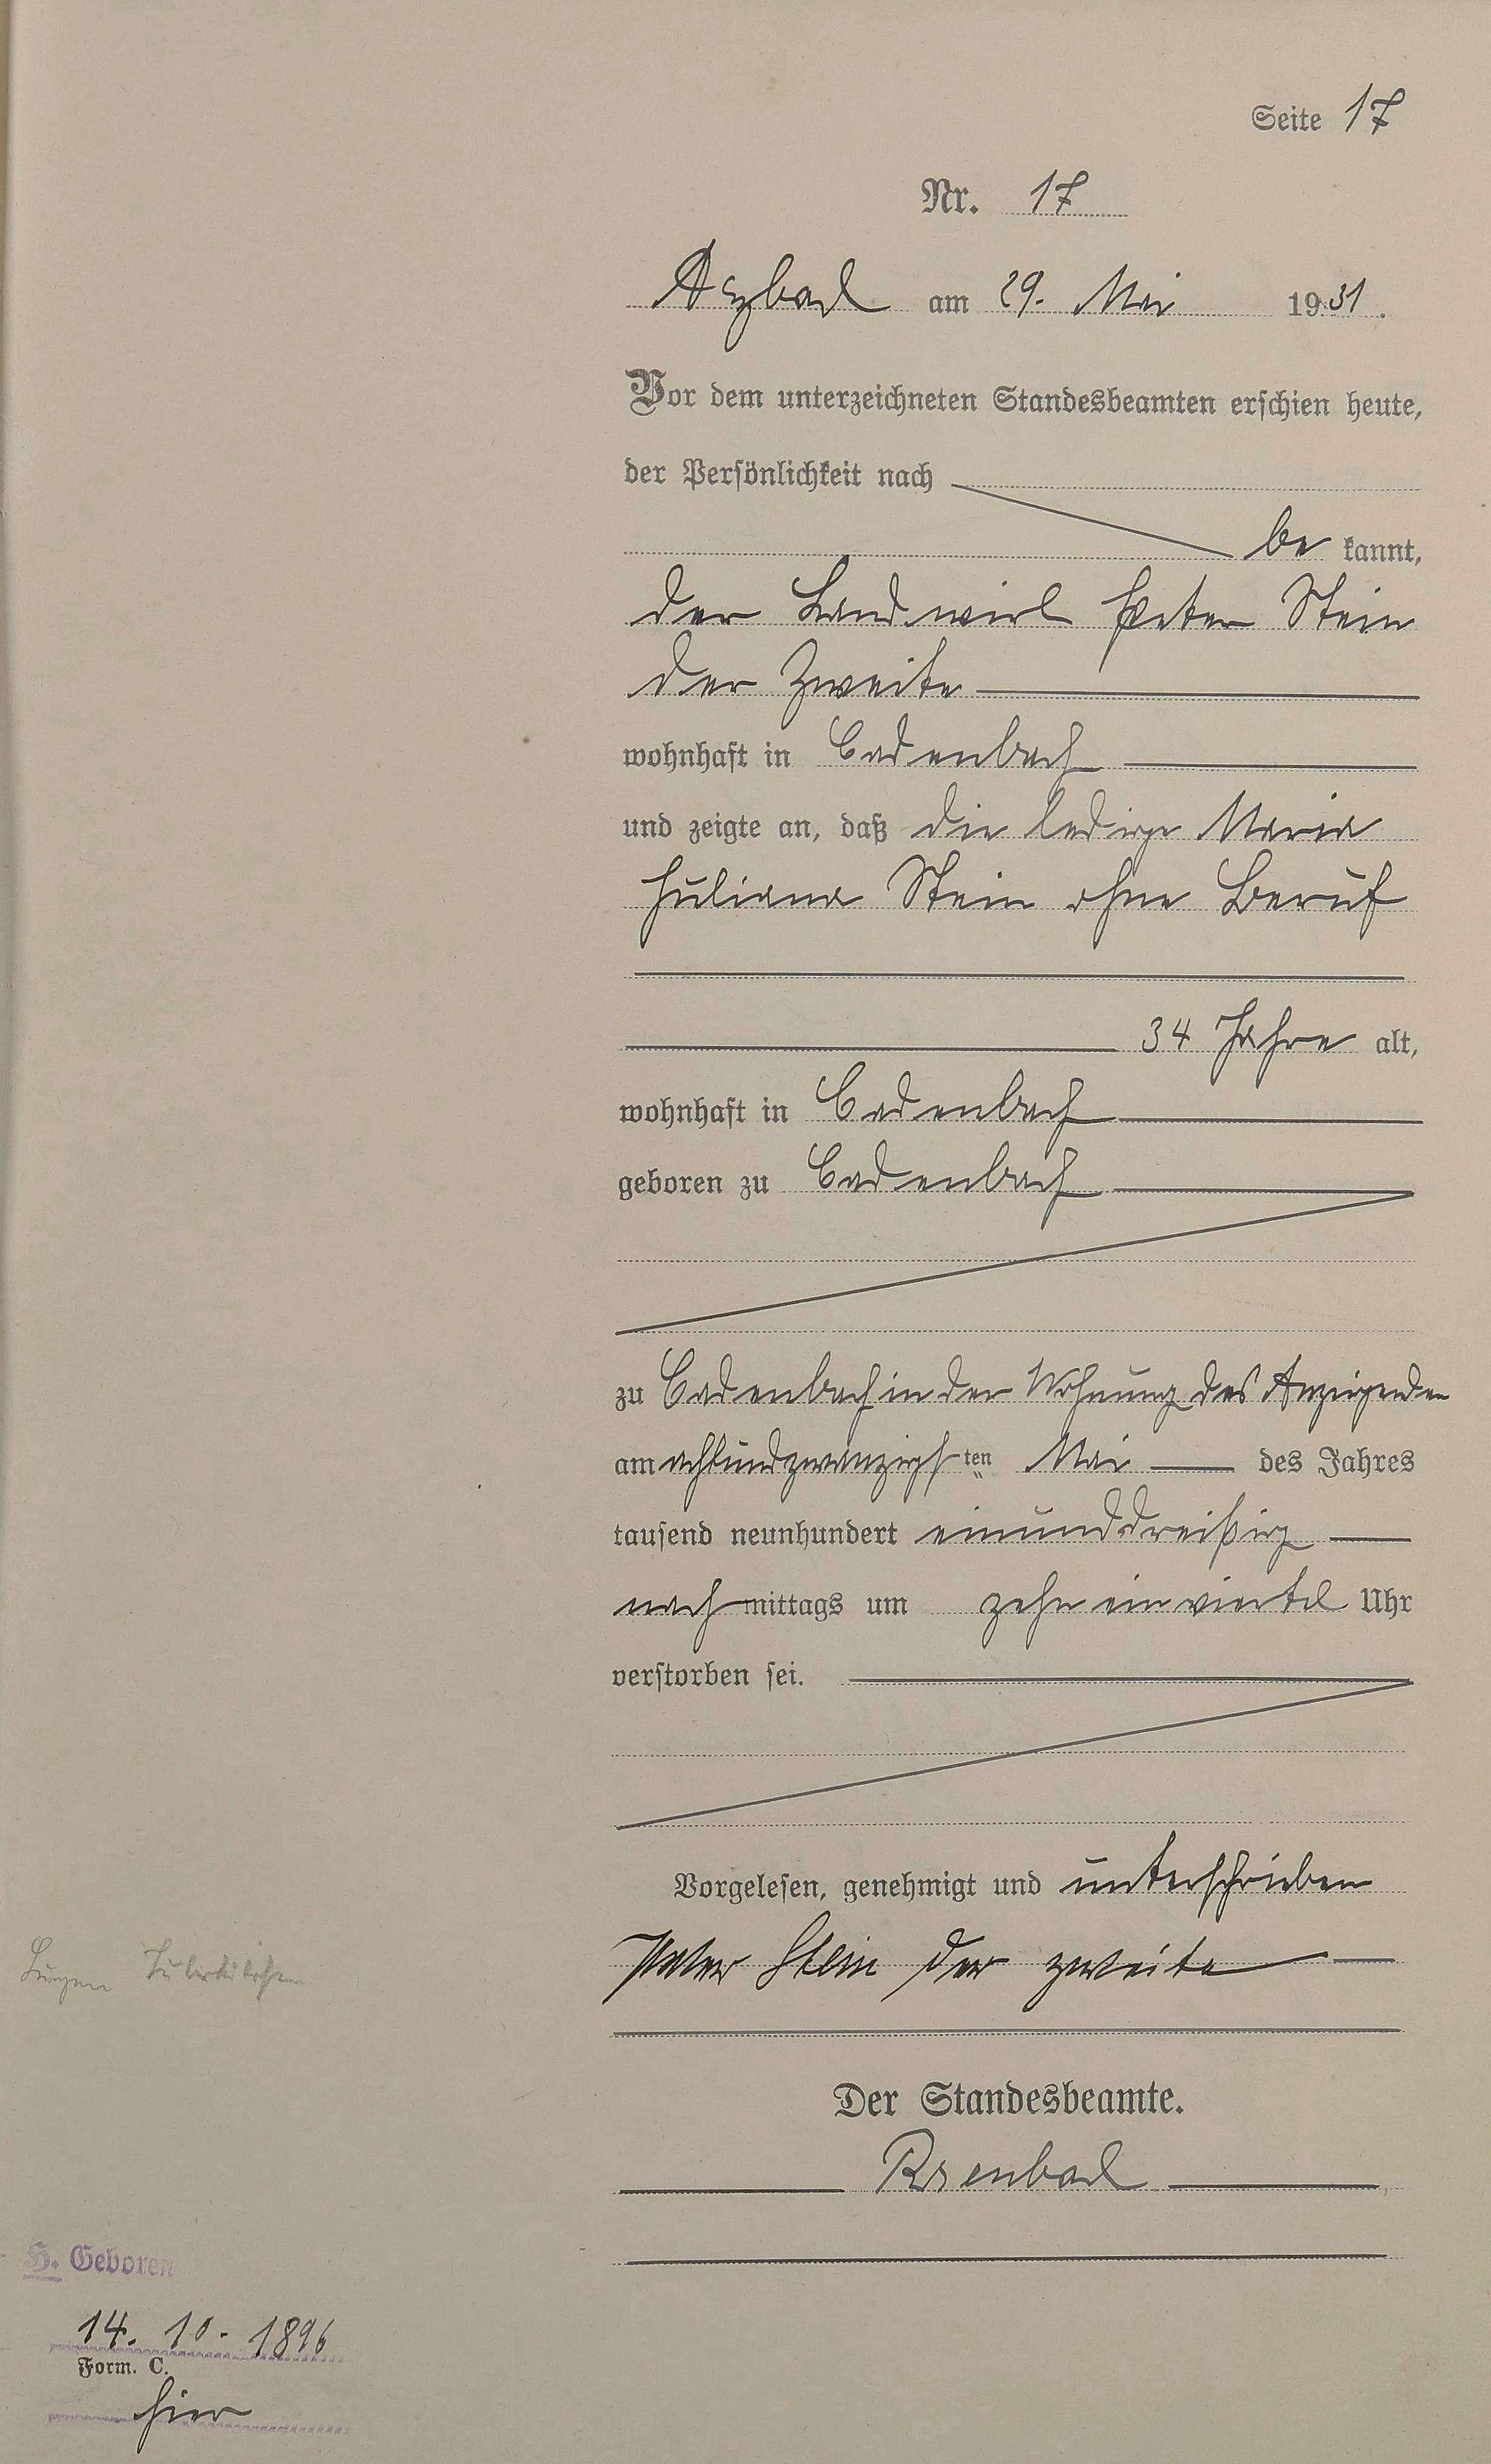 Seite 17
Nr. 17
Arzbach am 29. Mai 1931.
Vor dem unterzeichneten Standesbeamten erschien heute,
der Persönlichkeit nach
be kannt,
der Landwirt Peter Stein
der Zweite
wohnhaft in Cadenbach
und zeigte an, daß die ledige Maria
Juliana Stein ohne Beruf
34 Jahre alt,
wohnhaft in Cadenbach
geboren zu Cadenbach
zu Cadenbach in der Wohnung des Anzeigenden
am achtundzwanzigsten Mai des Jahres
tausend neunhundert einunddreißig
nachmittags um zehn ein viertel Uhr
verstorben sei.
Vorgelesen, genehmigt und unterschrieben
Peter Stein der zweite
Lungen Tuberkulose
Der Standesbeamte.
H. Geboren
14. 10. 1896
Form. C.
hier